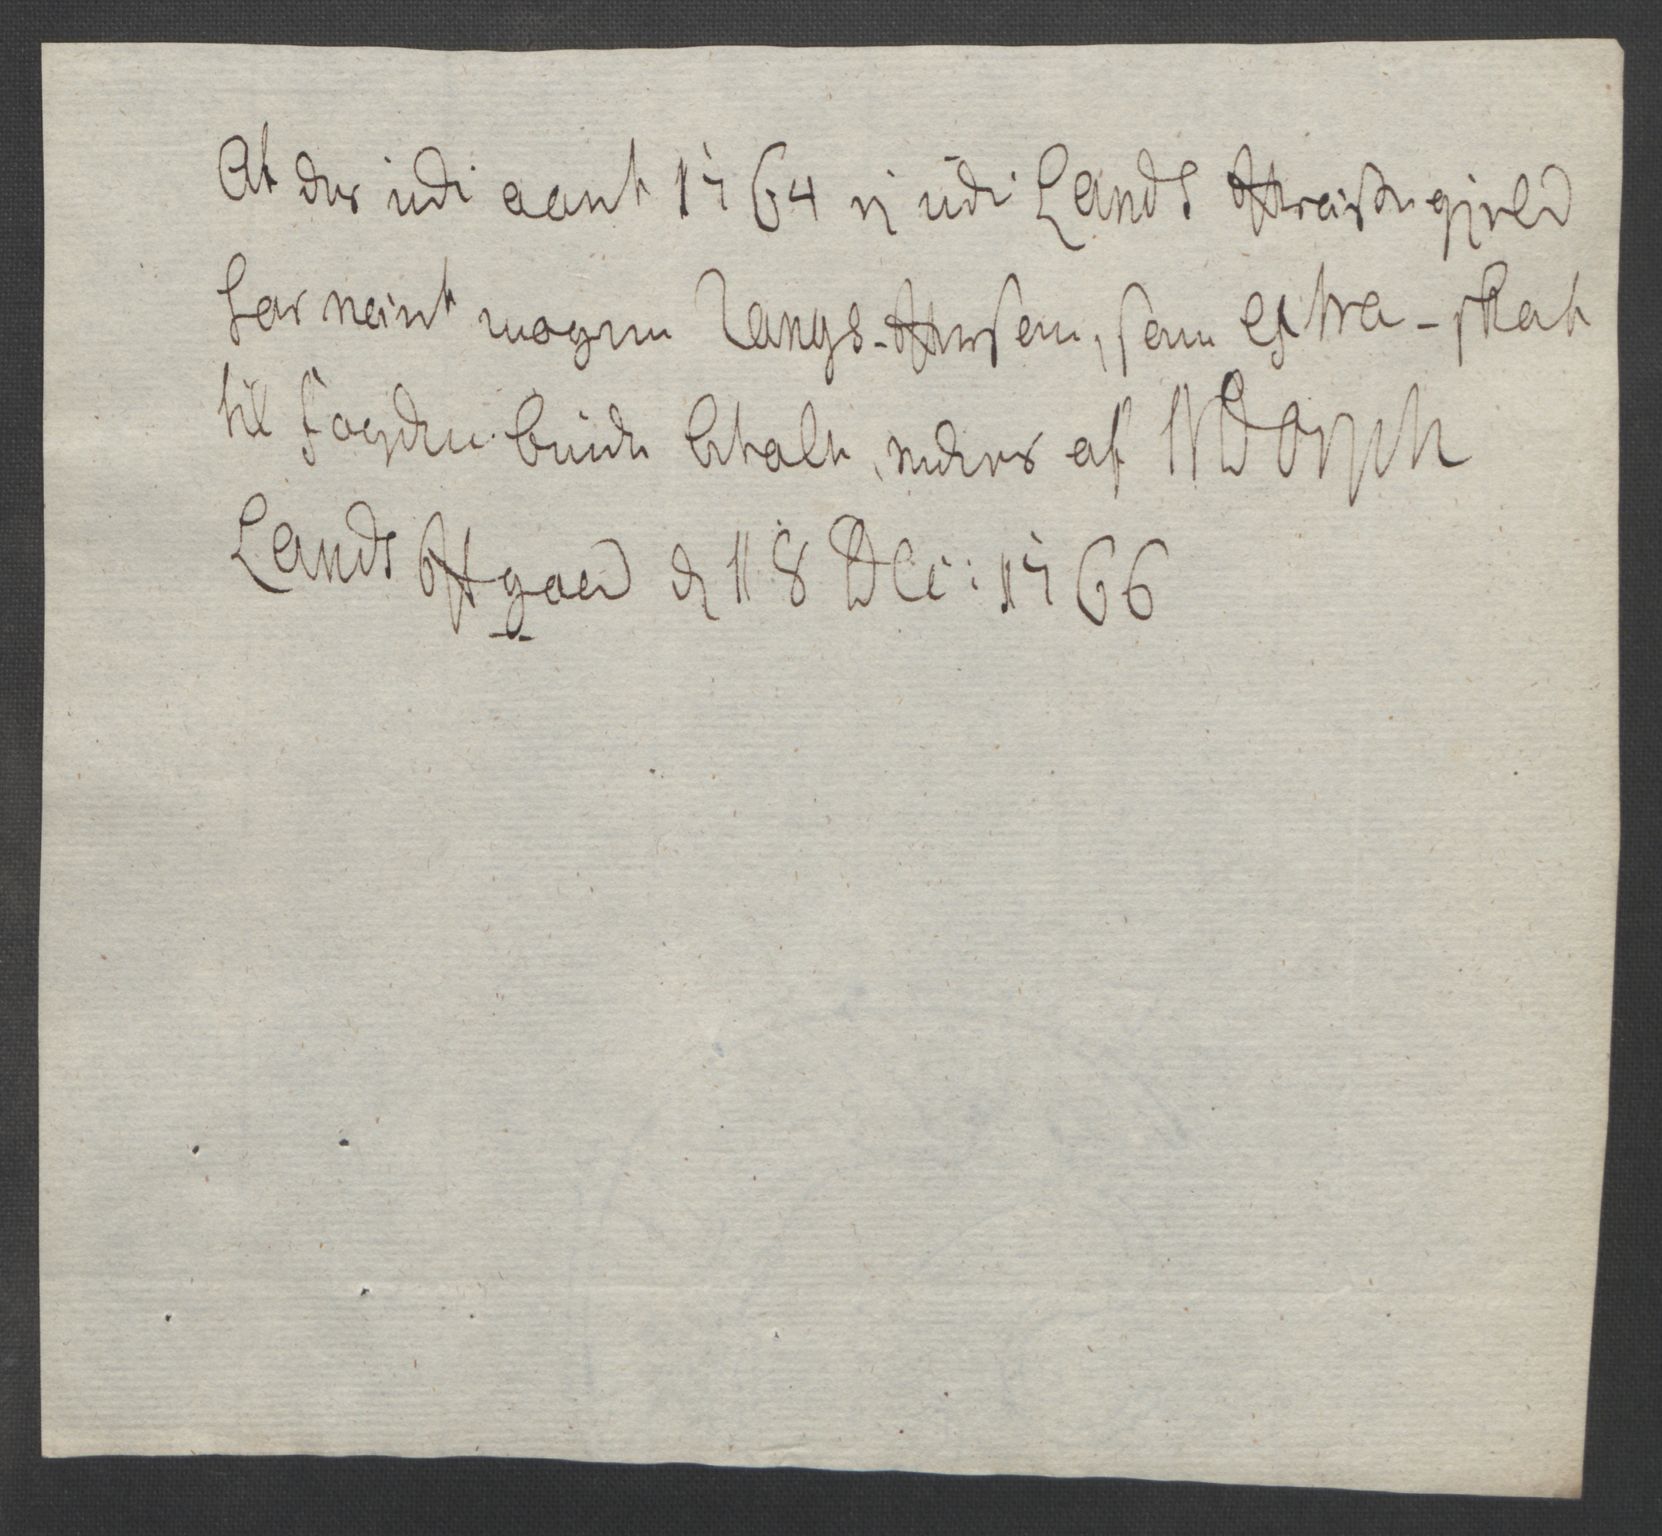 At der udi aaret 1764 ej udi Lands Præstegield
har været nogen Rangs-Person, som extra-skat
til Fogden burde betale, viidner af N Dorph
Lands Pstgaard d 18 Dec: 1766